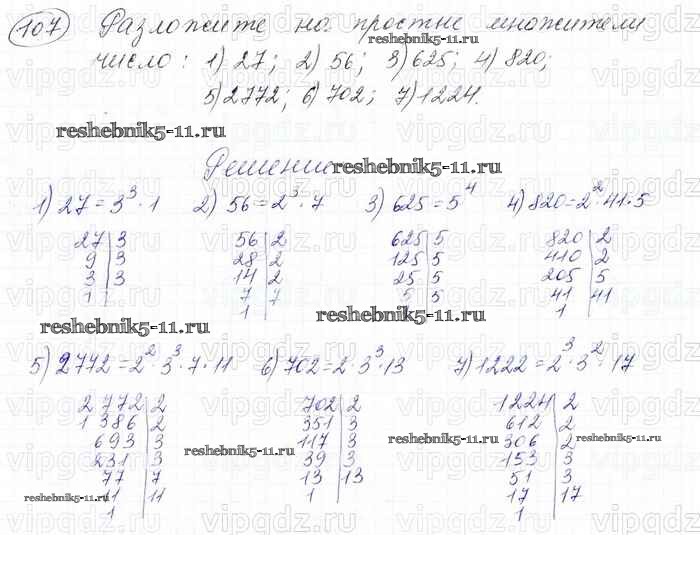 107 Разложите на простые множители
reshebnik5-11.ru
число: 1) 27; 2) 56; 3) 625; 4) 820;
5) 2772; 6) 702; 7) 1224.
reshebnik5-11.ru
Решение
reshebnik5-11.ru
1) 27 = 3³ · 1 2) 56 = 2³ · 7 3) 625 = 5⁴ 4) 820 = 2² · 41 · 5
27 | 3 56 | 2 625 | 5 820 | 2
9 | 3 28 | 2 125 | 5 410 | 2
3 | 3 14 | 2 25 | 5 205 | 5
1 | 7 | 7 5 | 5 41 | 41
1 | 1 |
reshebnik5-11.ru reshebnik5-11.ru
5) 2772 = 2² · 3³ · 7 · 11 6) 702 = 2 · 3³ · 13 7) 1222 = 2³ · 3² · 17
2772 | 2 702 | 2 1224 | 2
1386 | 2 351 | 3 612 | 2
693 | 3 117 | 3 306 | 2
231 | 3 39 | 3 153 | 3
77 | 7 13 | 13 51 | 3
11 | 11 1 | 17 | 17
1 | 1 |
reshebnik5-11.ru reshebnik5-11.ru reshebnik5-11.ru
reshebnik5-11.ru
vipgdz.ru